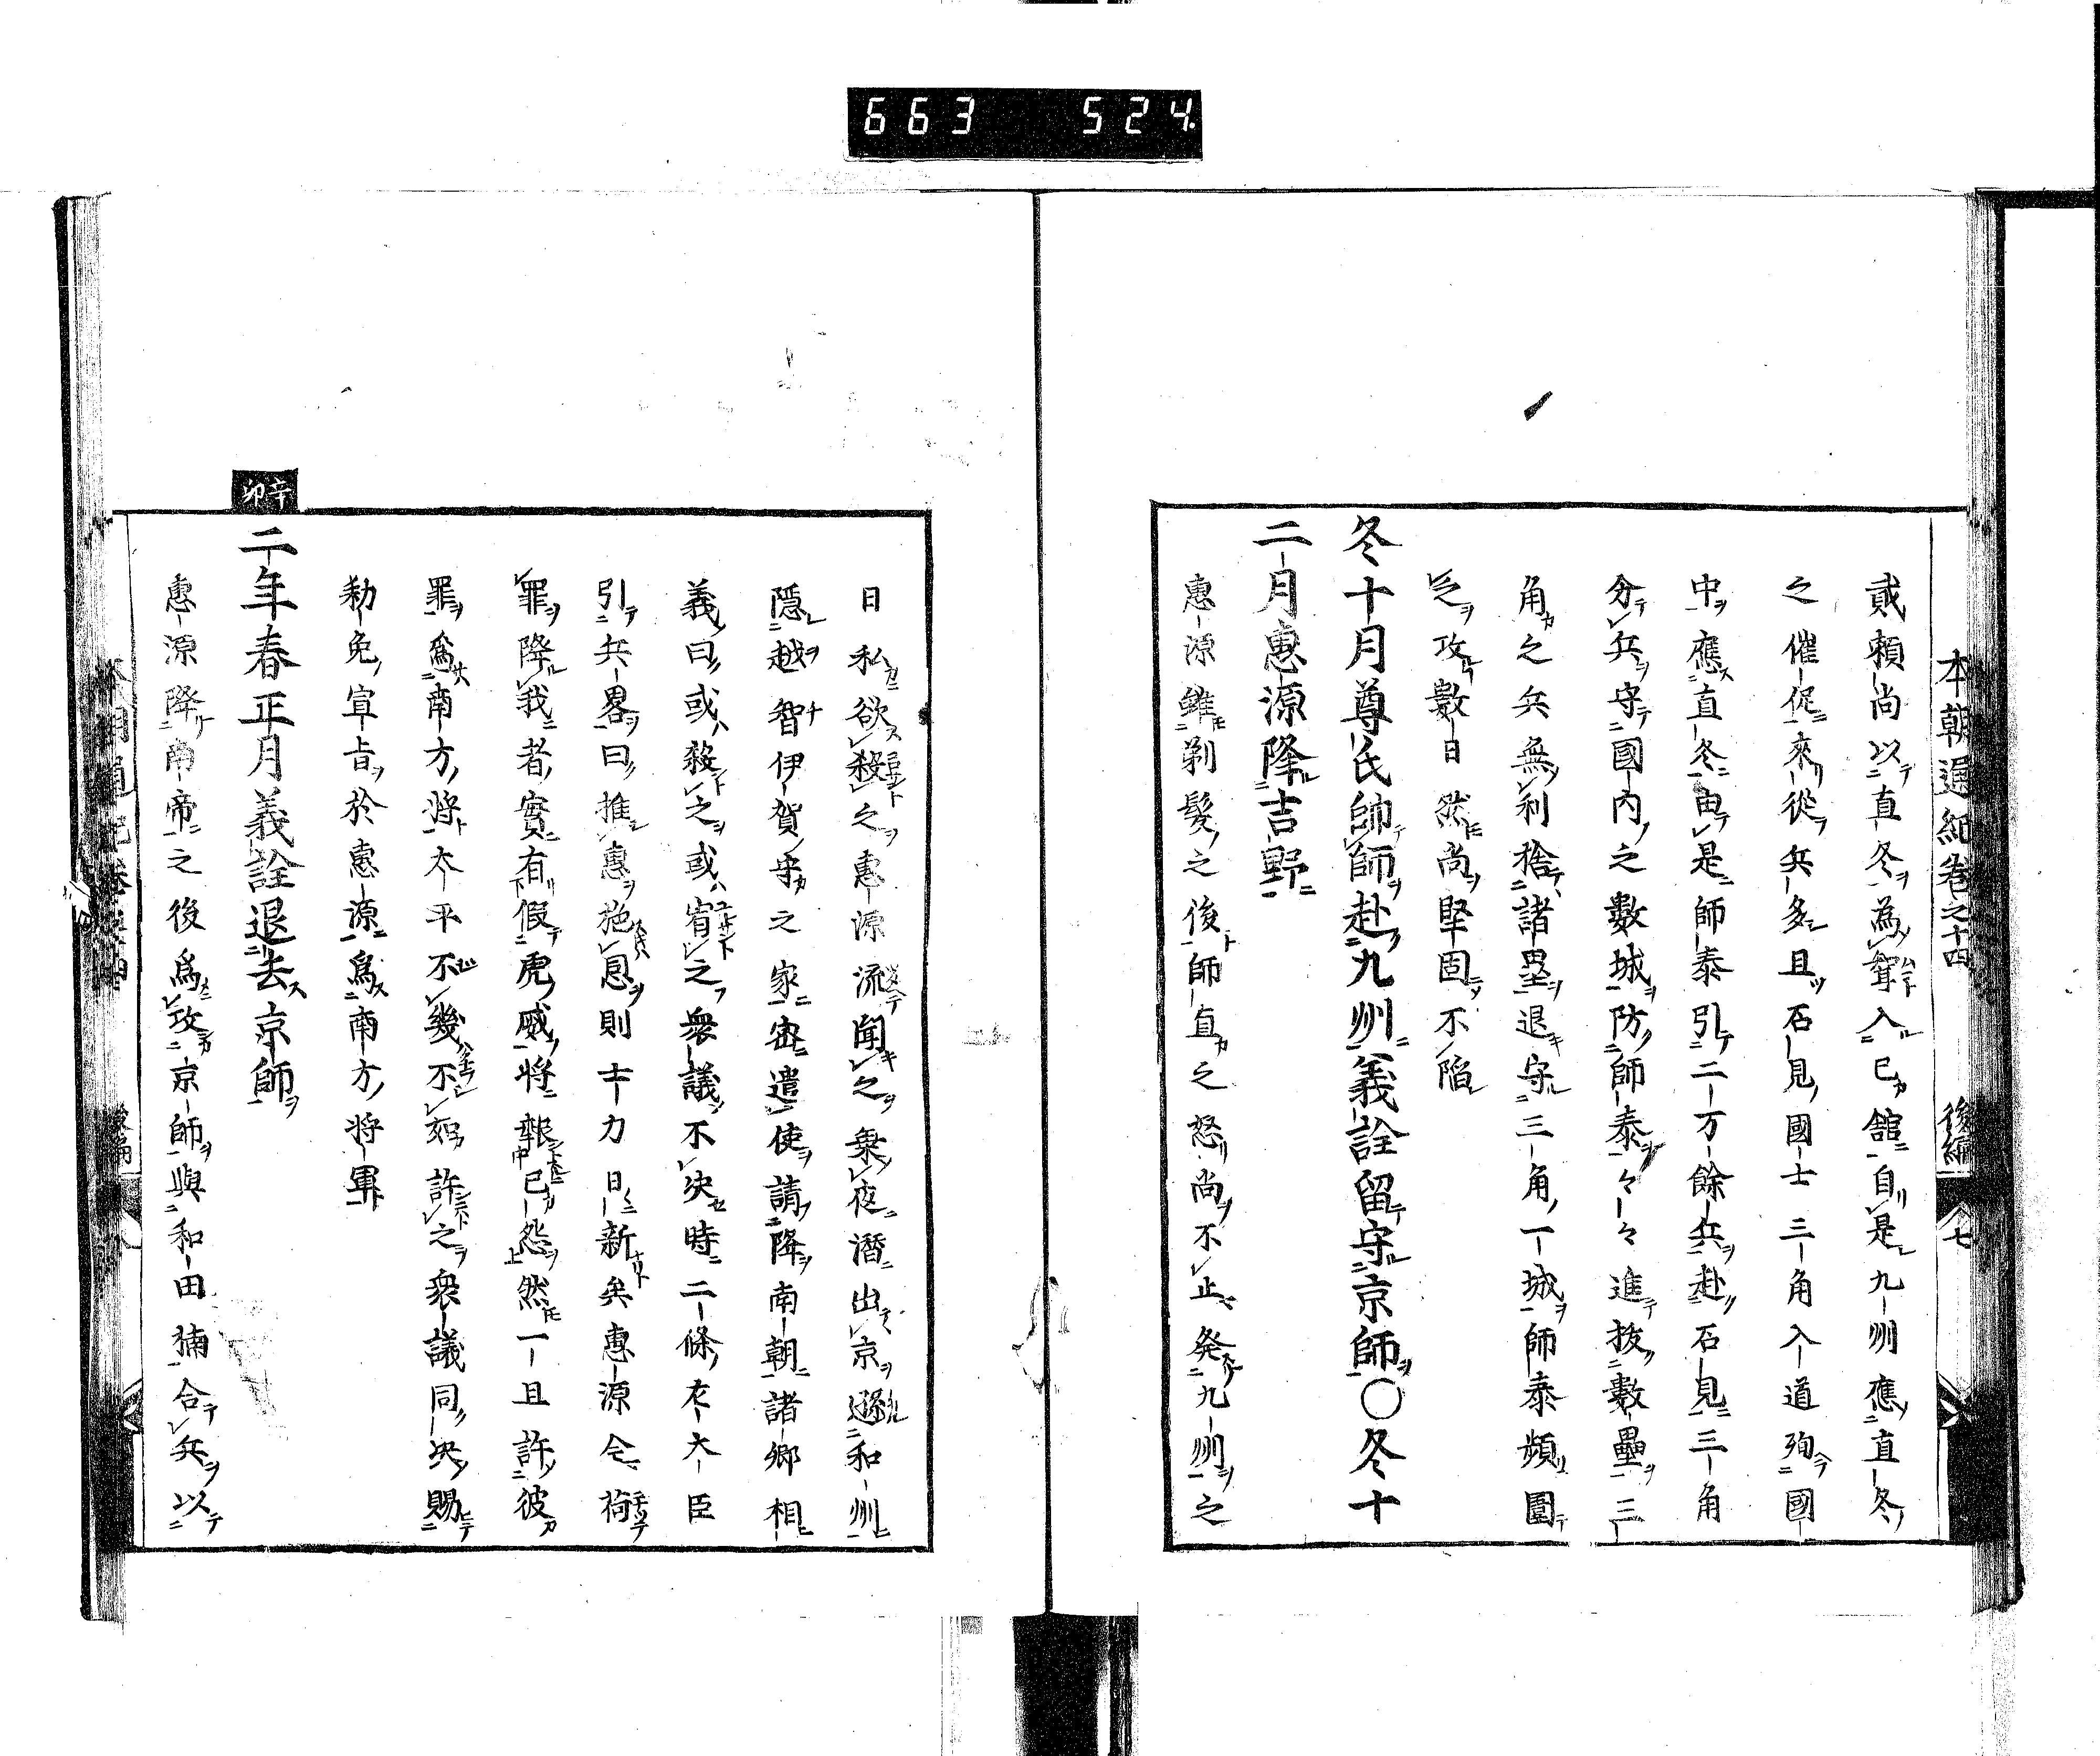 663 524
本朝通紀卷之十四 後編 七
貳頼尚以直冬為聟入已館自是九州應直冬
之催促來從兵多且石見國士三角入道殉國
中應直冬由是師泰引二万餘兵赴石見三角
分兵守國内之數城防師泰々々進抜數壘三
角之兵無利捨諸壘退守三角一城師泰頻圍
之攻數日然尚堅固不陥
冬十月尊氏帥師赴九州義詮留守京師〇冬十
二月惠源降吉野
惠源雖剃髮之後師直之怒尚不止発九州之
日私欲殺之惠源流聞之乗夜潛出京遯和州
隱越智伊賀守之家密遣使請降南朝諸卿相
義曰或殺之或宥之衆議不决時二條左大臣
引兵畧曰推惠施恩則士力日新矣惠源今猗
罪降我者實有假虎威將報已怨然一旦許彼
罪爲南方將太平不幾不如許之衆議同决賜
勅免宣旨於惠源爲南方將軍
辛卯
二年春正月義詮退去京師
惠源降南帝之後爲攻京師與和田楠合兵以